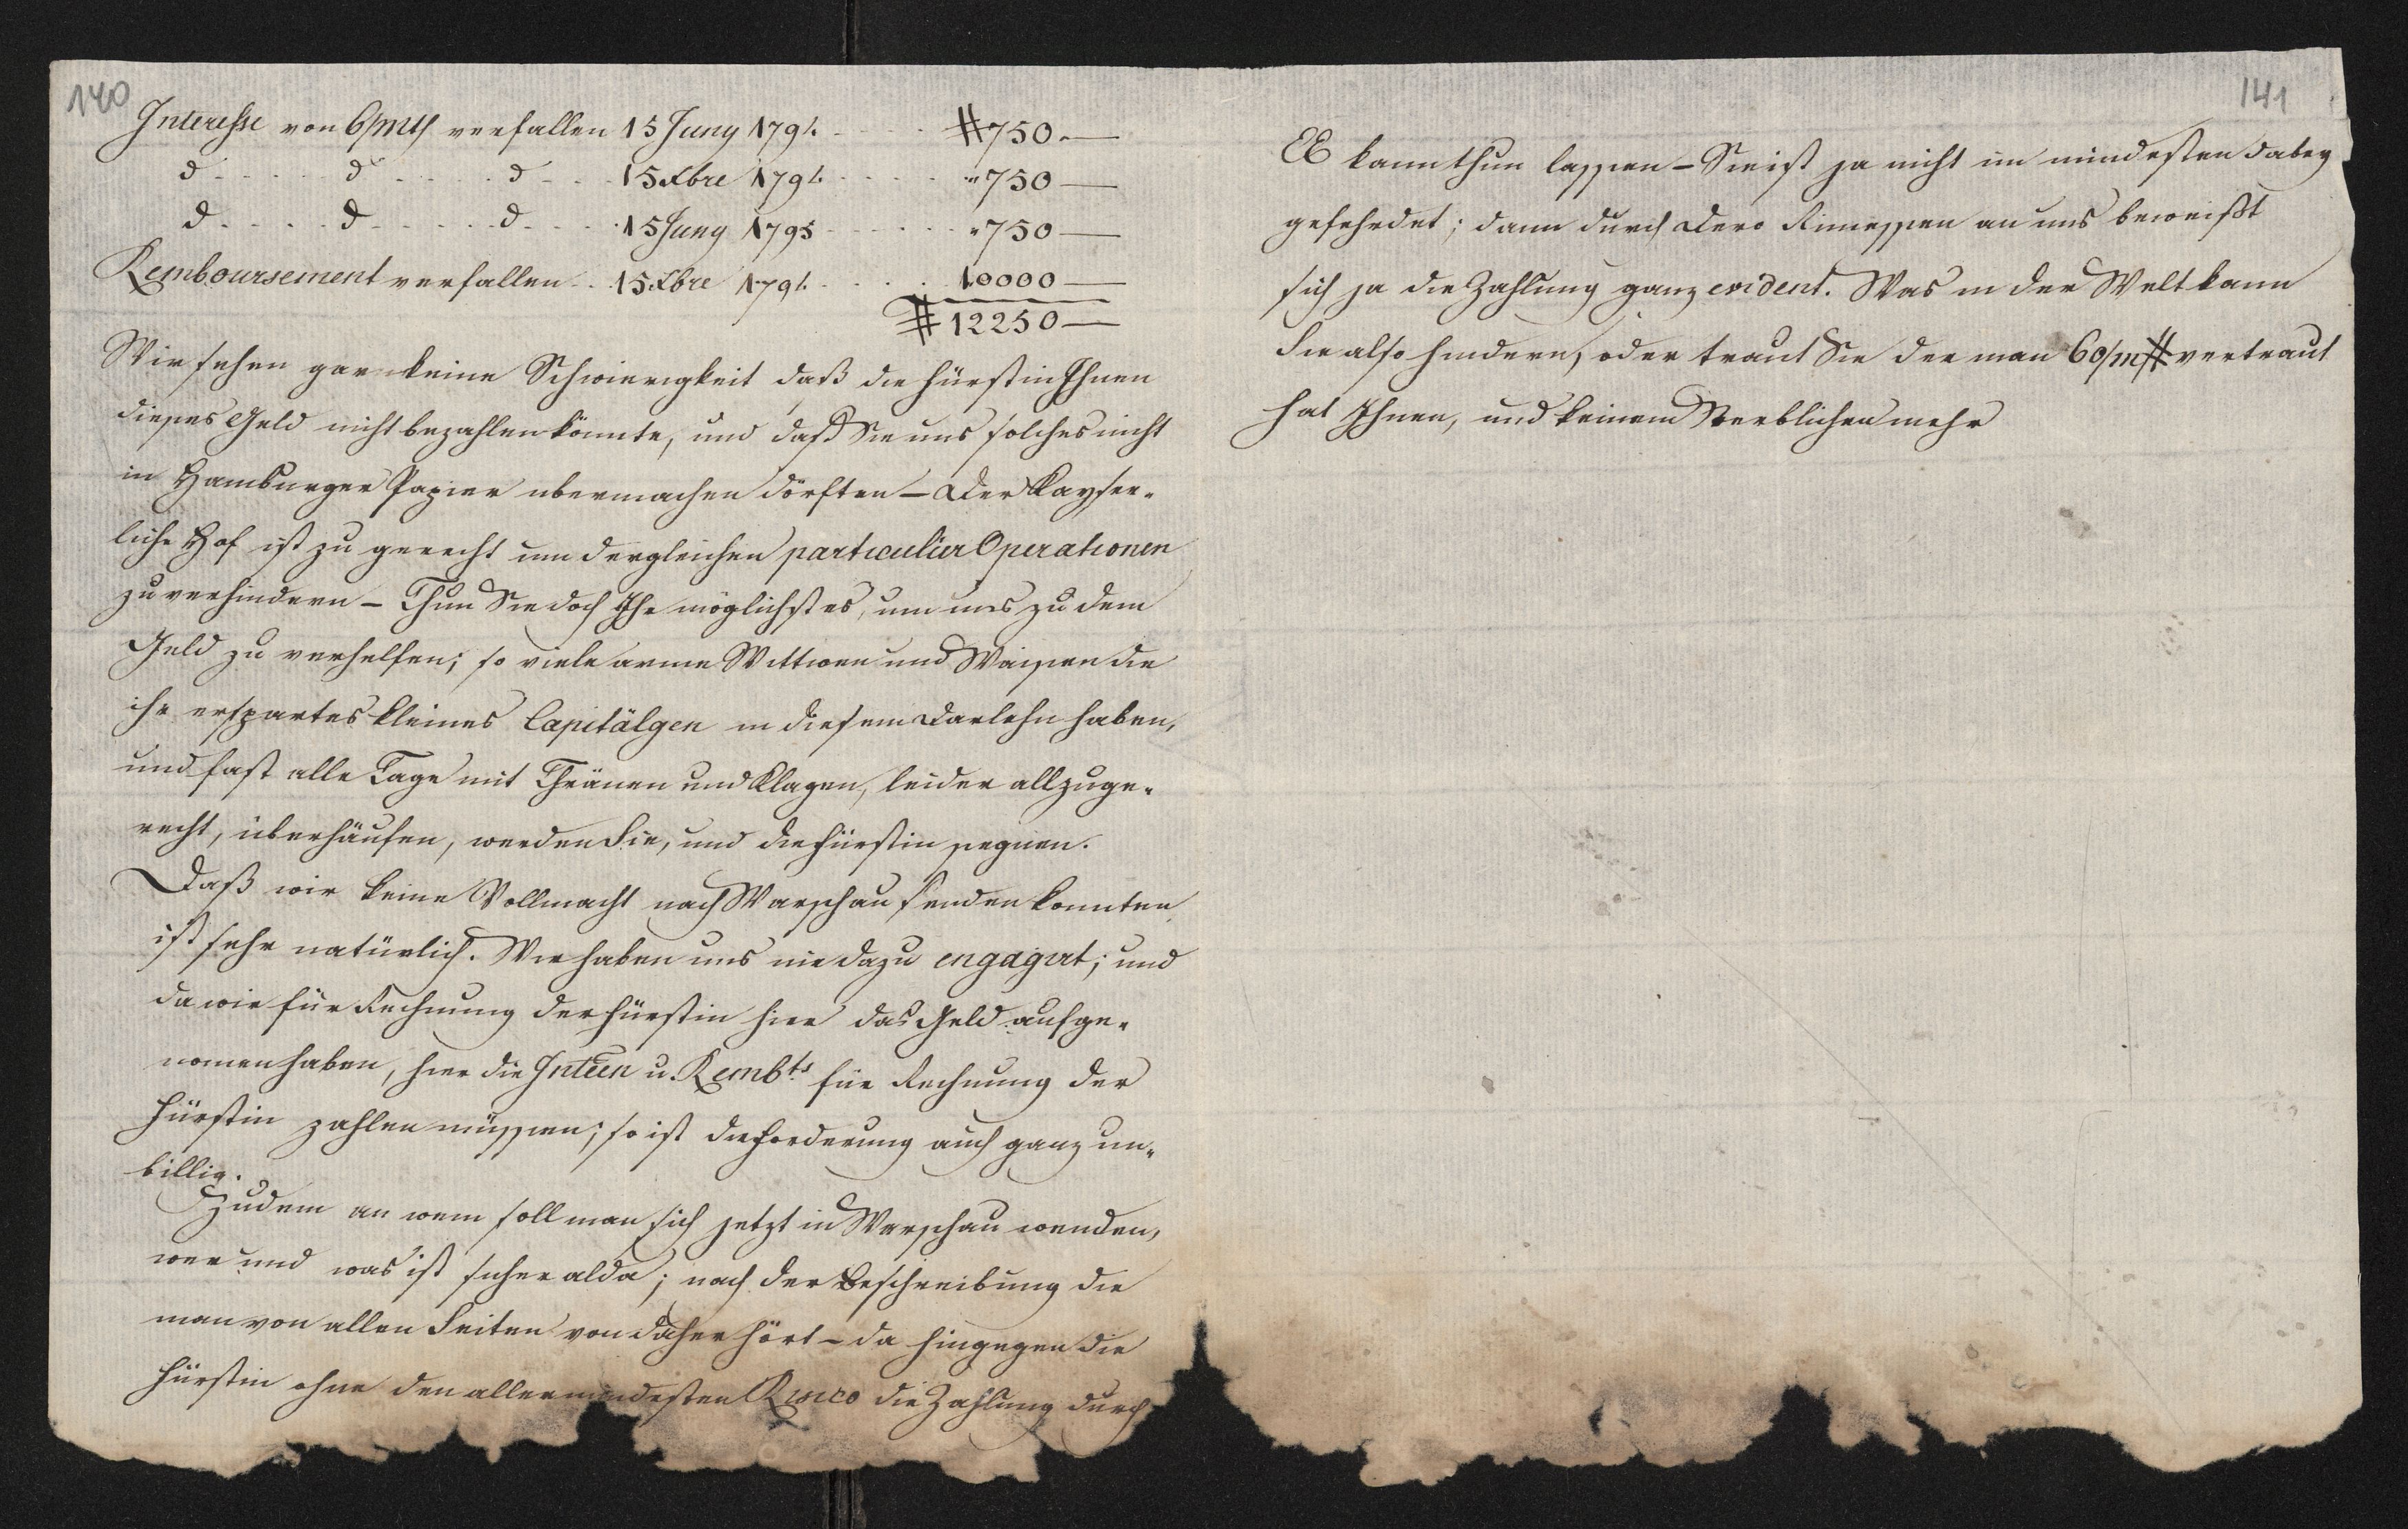 140
Interesse von 6/mth verfallen 15 Juny 1794. # 750.—
d d d 15 Xbre 1794. " 750—
d d d 15 Juny 1795 " 750—
Remboursement verfallen 15 Xbre 1794. 10000—
# 12250—
Wir sehen gar keine Schwierigkeit daß die Fürstin Ihnen
dieses Geld nicht bezahlen könnte, und daß Sie uns solches nicht
in Hamburger Papier ubermachen dörften – Der Kayser-
liche Hof ist zu gerecht um dergleichen particulier Operationen
zu verhindern – Thun Sie doch Ihr möglichstes, um uns zu dem
Geld zu verhelfen; so viele arme Wittwen und Waisen die
ihr erspartes kleines Capitälgen in diesem Darlehn haben,
und fast alle Tage mit Thränen und Klagen, leider allzuge-
recht, überhäufen, werden Sie, und die Fürstin segnen.
Daß wir keine Vollmacht nach Warschau senden konnten
ist sehr natürlich. Wir haben uns nie dazu engagirt; und
da wir für Rechnung der Fürstin hier das Geld aufge-
nomen haben, hier die Inteen u. Rembts. für Rechnung der
Fürstin zahlen müssen; so ist die Forderung auch ganz un-
billig.
Zudem an wem soll man sich jetzt in Warschau wenden,
wer und was ist sicher alda; nach der Beschreibung die
man von allen Seiten von daher hört – da hingegen die
Fürstin ohne den allermindesten Risico die Zahlung durch
141
EE kann thun lassen – Sie ist ja nicht im mindesten dabey
gefehrdet; dann durch Dero Rimessen an uns beweißt
sich ja die Zahlung ganz evident. Was in der Welt kann
Sie also hindern, oder traut Sie der man 60/m # vertraut
hat Ihnen, und keinem Sterblichen mehr